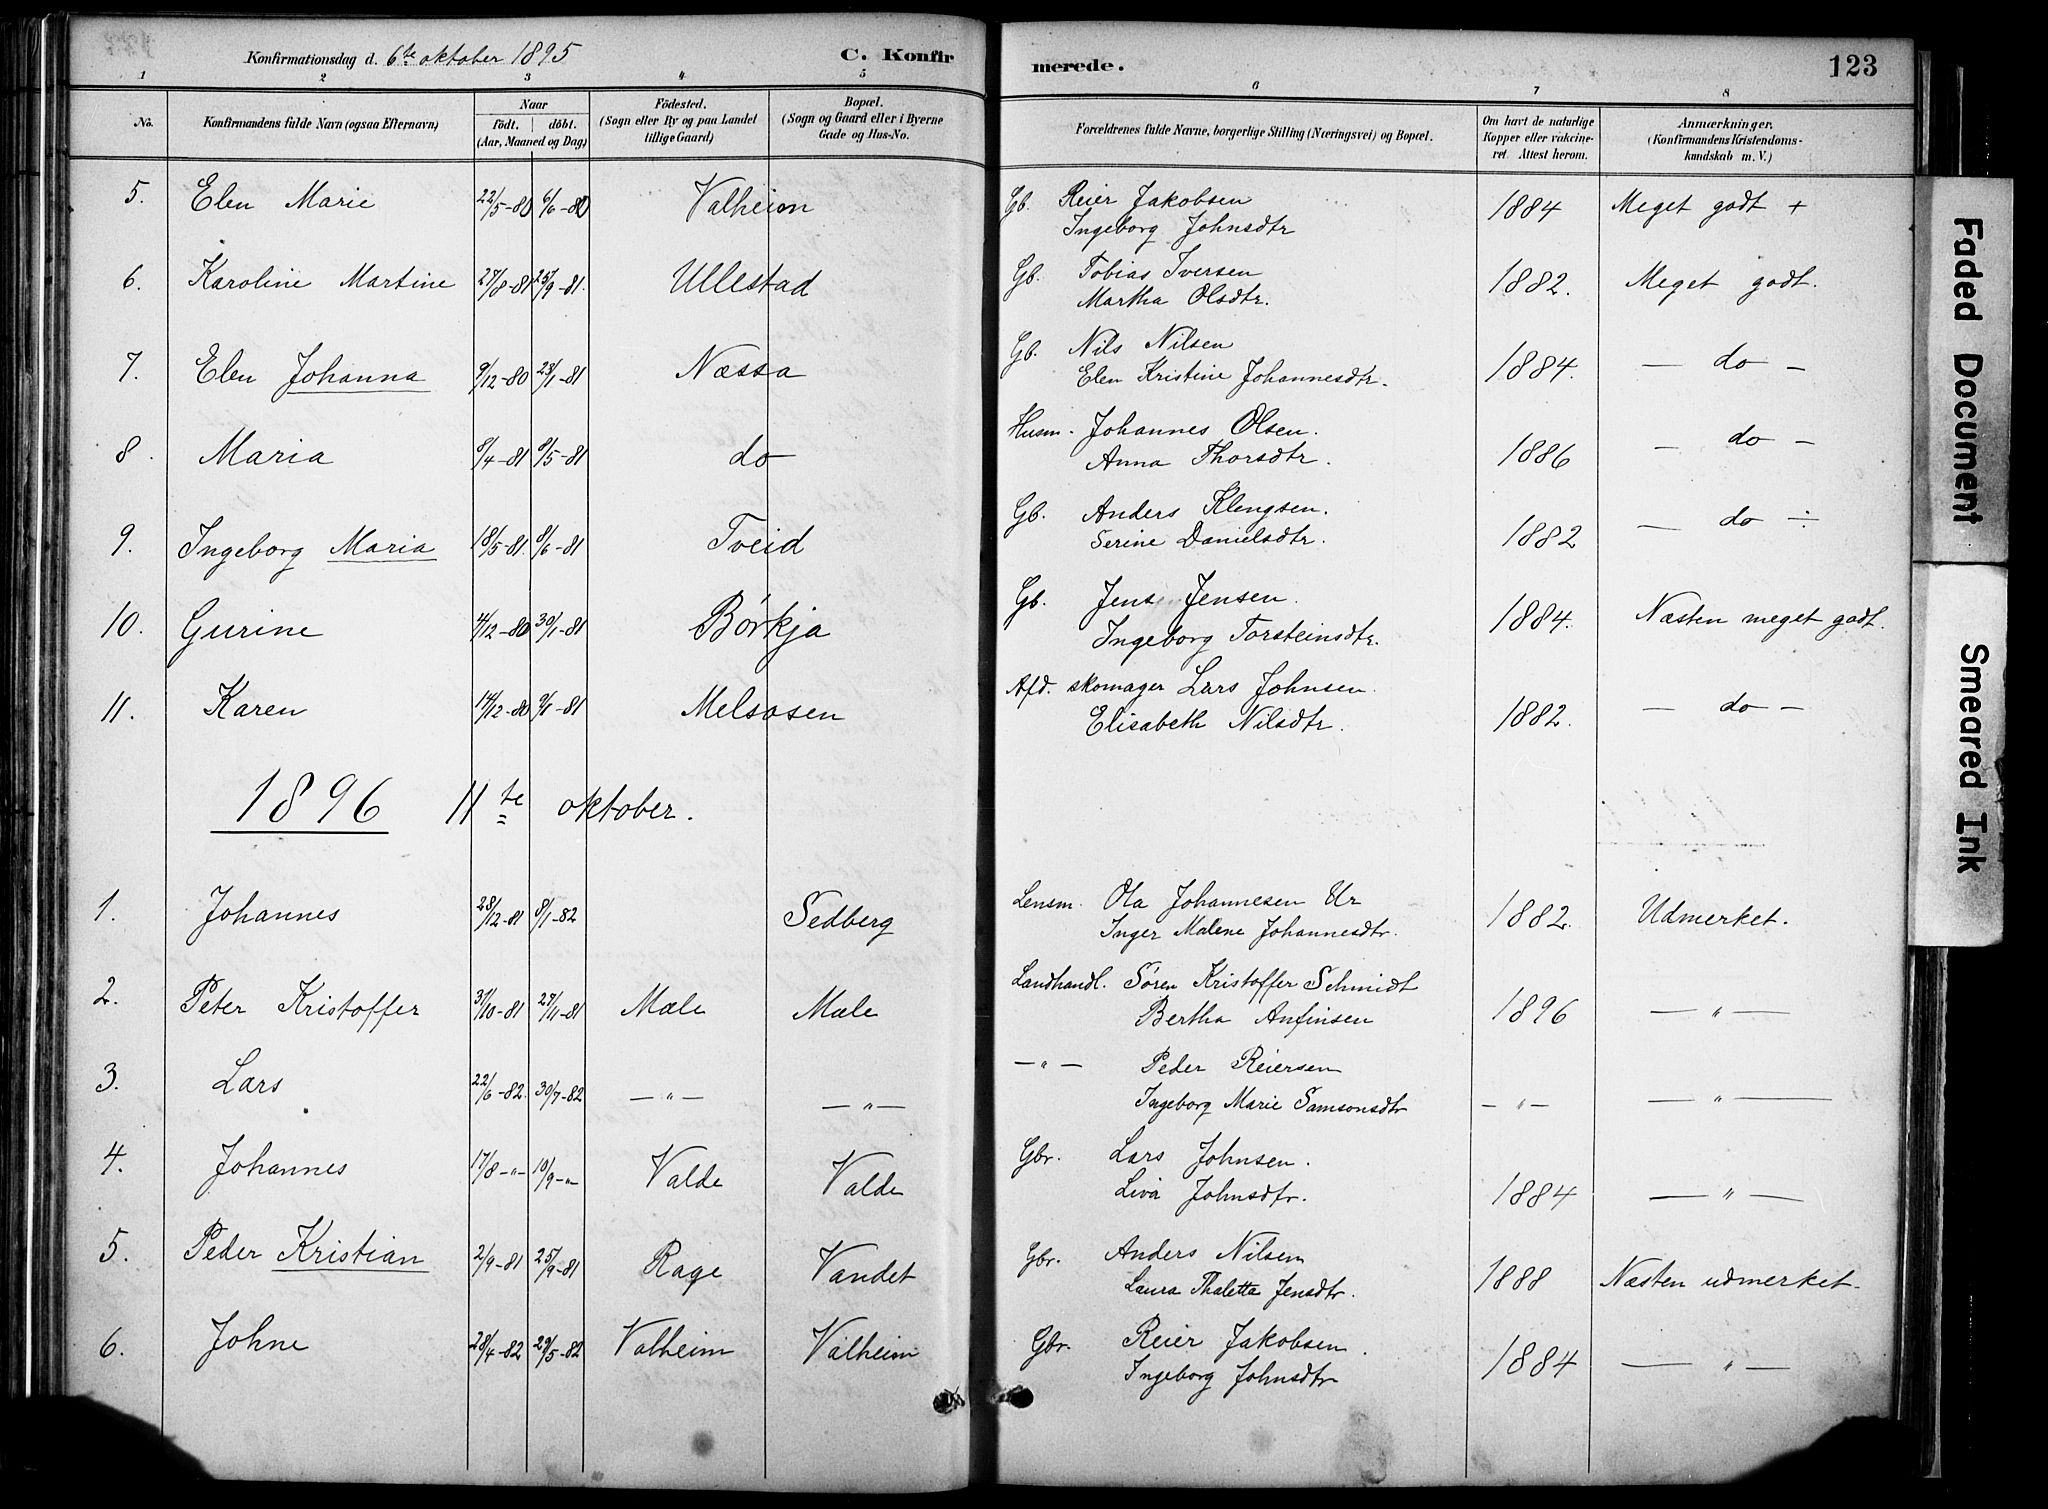 Konfirmationsdag d. 6te oktober 1895
C. Konfir
merede.
123
1 2 3 4 5 6 7 8
No.
Konfirmandens fulde Navn (ogsaa Efternavn)
Naar
födt. döbt.
(Aar, Maaned og Dag)
Födested.
(Sogn eller By og paa Landet
tillige Gaard)
Bopæl.
(Sogn og Gaard eller i Byerne
Gade og Hus-No.
Forældrenes fulde Navne, borgerlige Stilling (Næringsvei) og Bopæl.
Om havt de naturlige
Kopper eller vakcine-
ret. Attest herom.
Anmærkninger,
(Konfirmandens Kristendoms-
kundskab m. V.)
5. Elen Marie 22/5-80 6/6-80 Valheim Gb. Reier Jakobsen 1884 Meget godt +
Ingeborg Johnsdtr
6. Karoline Martine 27/8-81 25/9-81. Ullestad Gb. Tobias Iversen 1882. Meget godt.
Martha Olsdtr.
7. Elen Johanna 9/12-80 23/1-81 Næssa Gb. Nils Nilsen 1884. — do —
Elen Kristine Johannesdtr.
8. Maria 8/4-81 8/5-81 do Husm. Johannes Olsen. 1886 — do —
Anna Thorsdtr.
9. Ingeborg Maria 18/5-81. 8/6-81 Tveid Gb. Anders Klengsen. 1882 — do ÷
Serine Danielsdtr.
10. Gurine 4/12-80 30/1-81 Börkja Gb. Jens Jensen. 1884. Næsten meget godt.
Ingeborg Torsteinsdtr.
11. Karen 14/12-80 9/1-81 Melsosen Afd. skomager Lars Johnsen. 1882. — do —
Elisabeth Nilsdtr.
1896 11te oktober.
1. Johannes 28/12-81 8/1-82 Sedberg Lensm. Ola Johannesen Ur 1882. Udmerket.
Inger Malene Johannesdtr.
2. Peter Kristoffer 31/10-81 27/11-81 Mæle Mæle Landhandl. Sören Kristoffer Schmidt 1896 — " —
Bertha Anfinsen
3. Lars 22/6-82. 30/7-82 — " — — " — — " — Peder Reiersen
Ingeborg Marie Samsonsdtr — " — — " —
4. Johannes 17/8-"- 10/9-"- Valde Valde Gbr. Lars Johnsen. 1884 — " —
Liva Johnsdtr.
5. Peder Kristian 2/9-81 25/9-81 Rage Vandet Gbr. Anders Nilsen 1888 Næsten udmerket.
Laura Thaletta Jensdtr.
6. Johne 28/4-82 29/5-82 Valheim Valheim Gbr. Reier Jakobsen. 1884 — " —
Ingeborg Johnsdtr
Faded Document
Smeared Ink